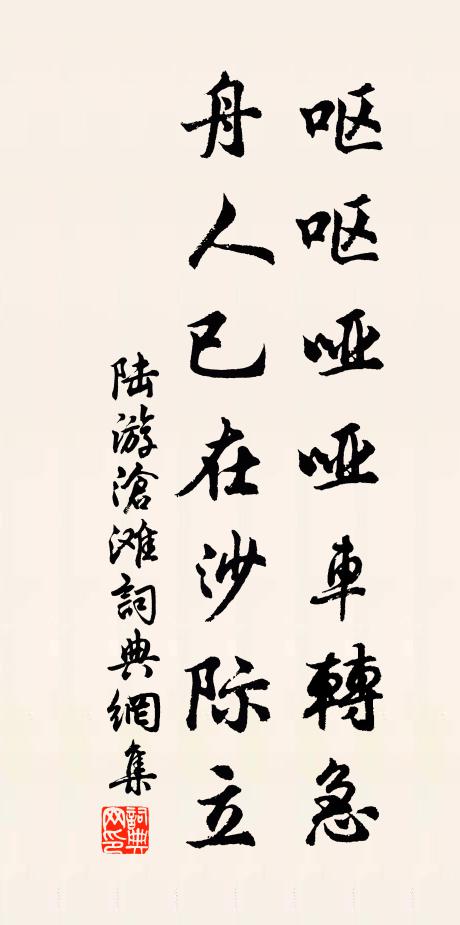 呕呕哑哑車轉急
舟人已在沙际立
陆游滄滩詞典網集
詞典網印